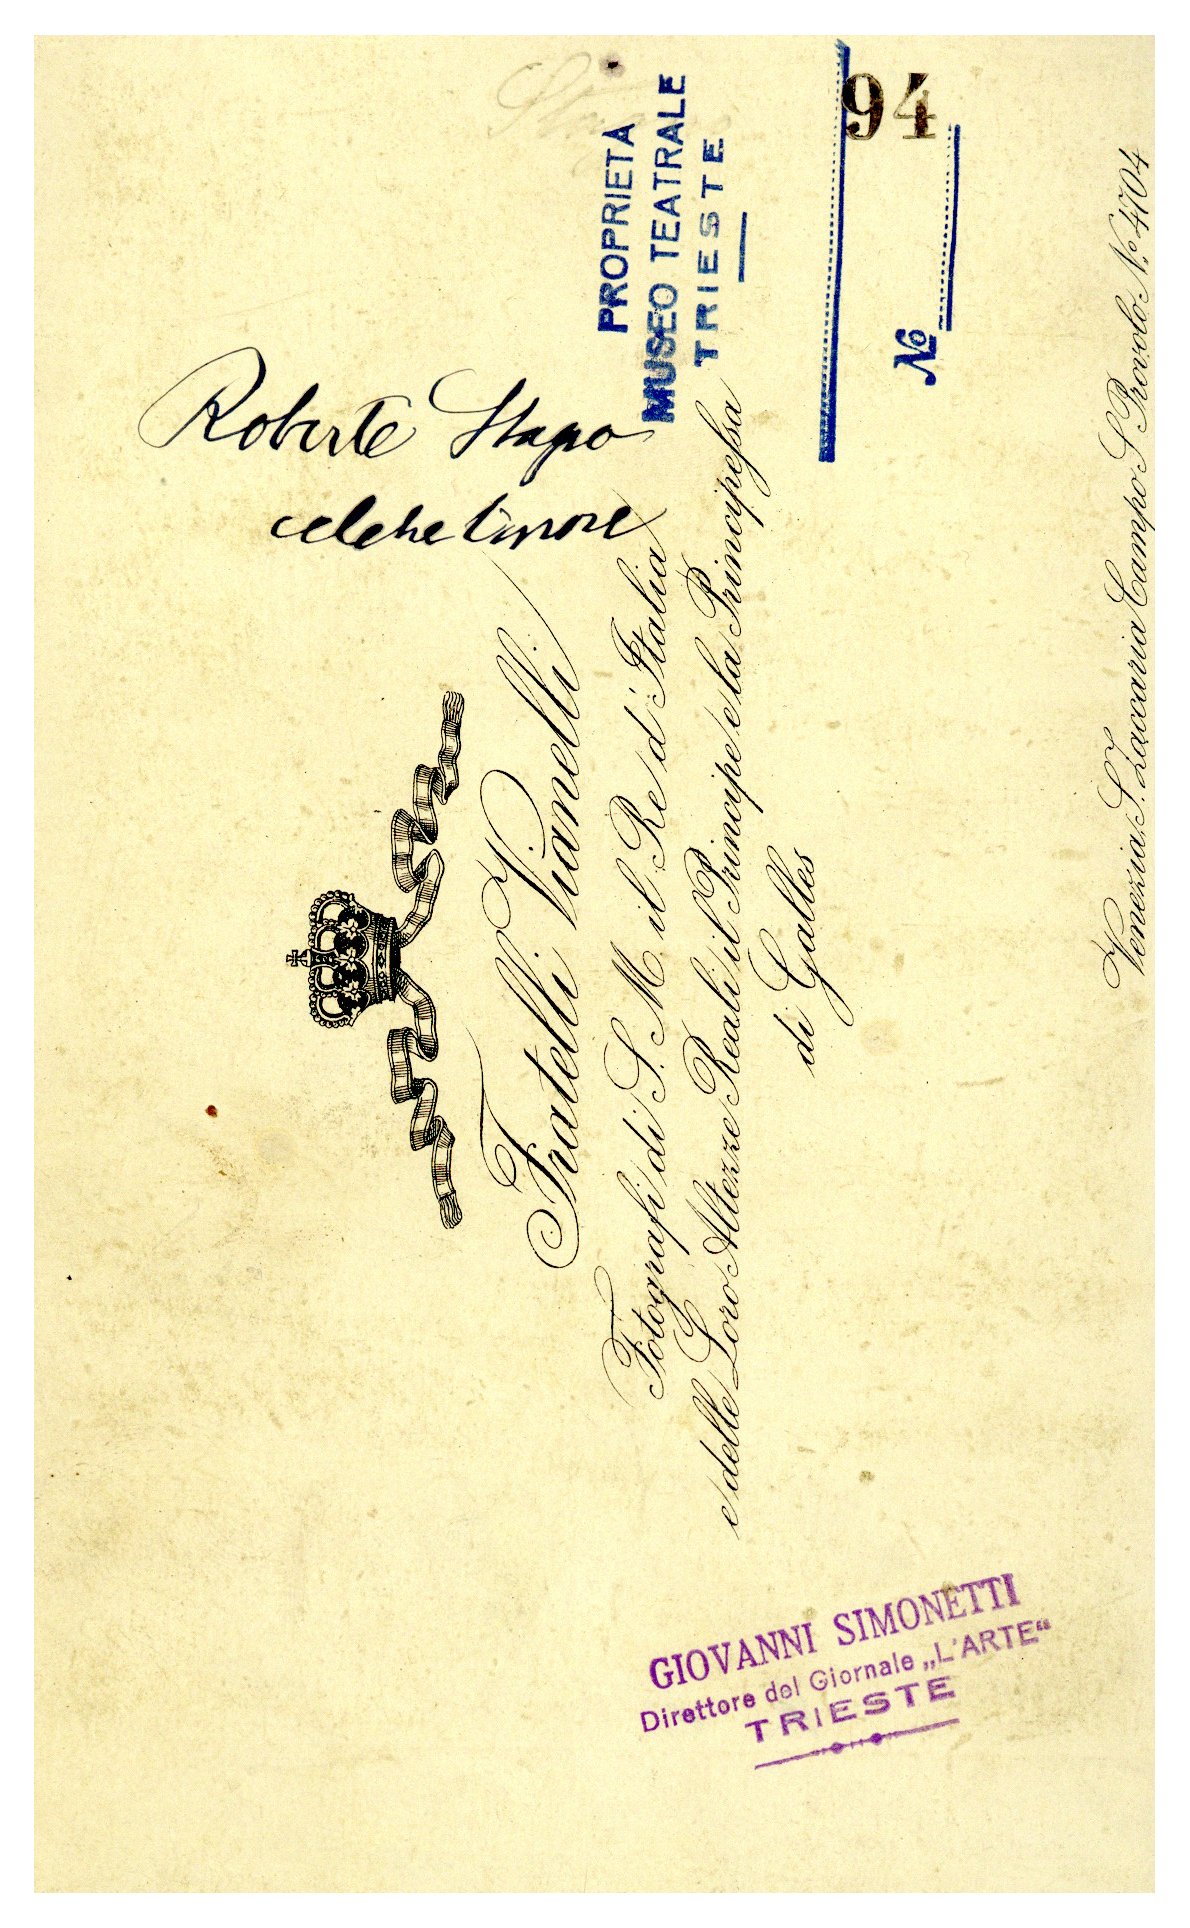 94
PROPRIETÀ
MUSEO TEATRALE
TRIESTE
No
Roberto Stagno
celebre tenore
Fratelli Vianelli
Fotografi di S. M. il Re d'Italia
e delle Loro Altezze Reali il Principe e la Principessa
di Galles
Venezia, S. Zaccaria Campo S. Provolo No. 4704
GIOVANNI SIMONETTI
Direttore del Giornale „L'ARTE“
TRIESTE